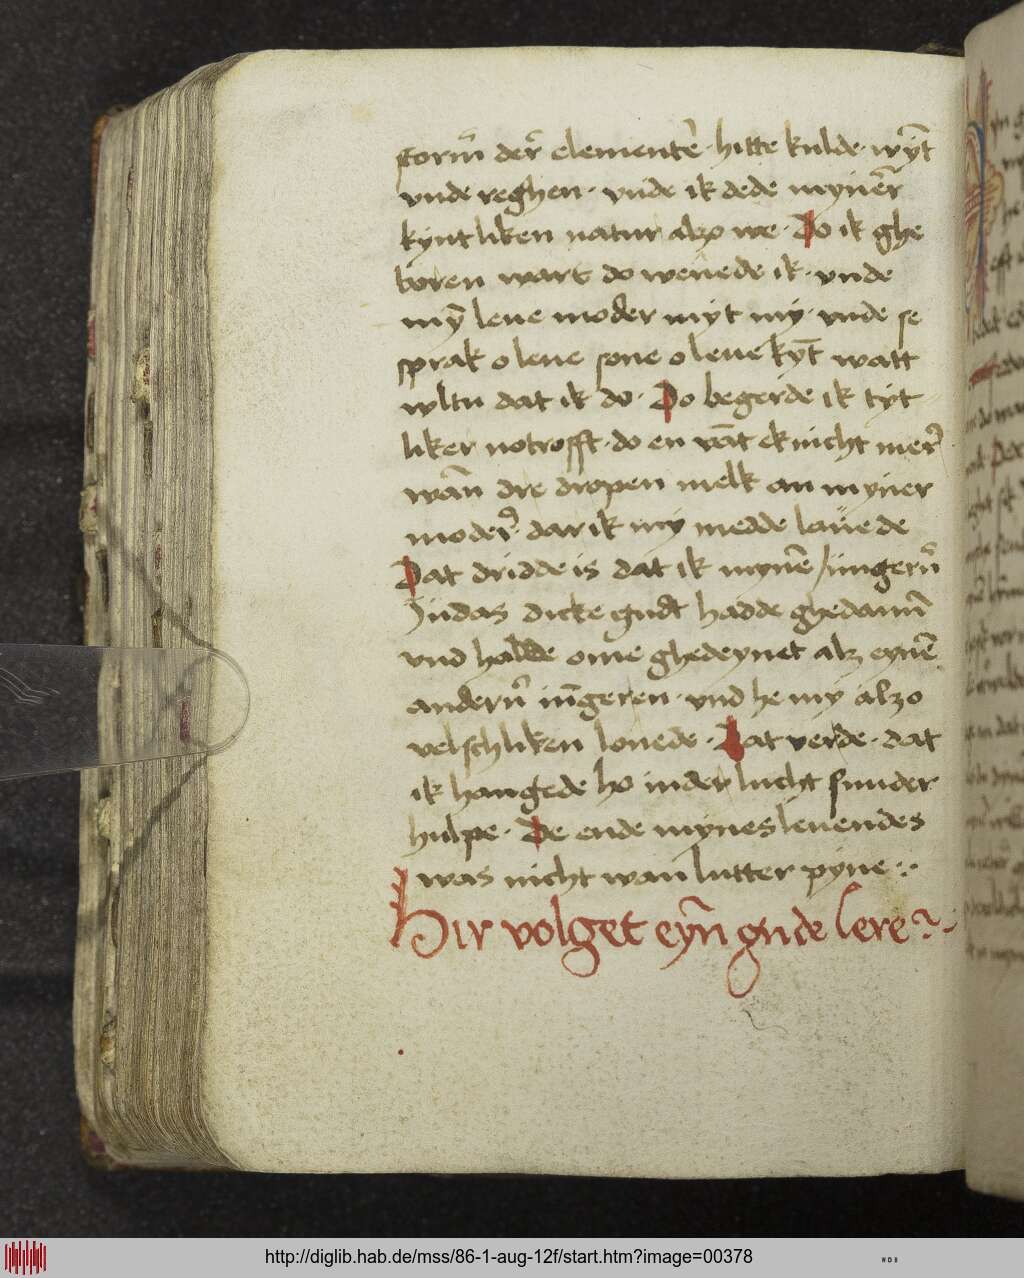 storm der elemente hitte kulde wynt
vnde reghen · vnde ik dede myner
kyntliken natur alzo we · Do ik ghe
boren wart do wenede ik · vnde
my leue moder myt my · vnde se
sprak o leue sone o leue kyt watt
wltu dat ik do · Do begerde ik tyt
liker notrofft · do en vāt ek nicht mer
wān dre dropen melk an myner
moder · dar ik my medde lauede
Dat dridde is dat ik mynē iungern
Judas dicke gudt hadde ghedann
vnd hadde ome ghedeynet alz eynē
andern iūgeren · vnd he my alzo
velschliken lonede · Dat verde · dat
ik hangede ho in der lucht sunder
hulpe · De ende mynes leuendes
was nicht wan lutter pyne :·
Hir volget eyn gude lere
http://diglib.hab.de/mss/86-1-aug-12f/start.htm?image=00378